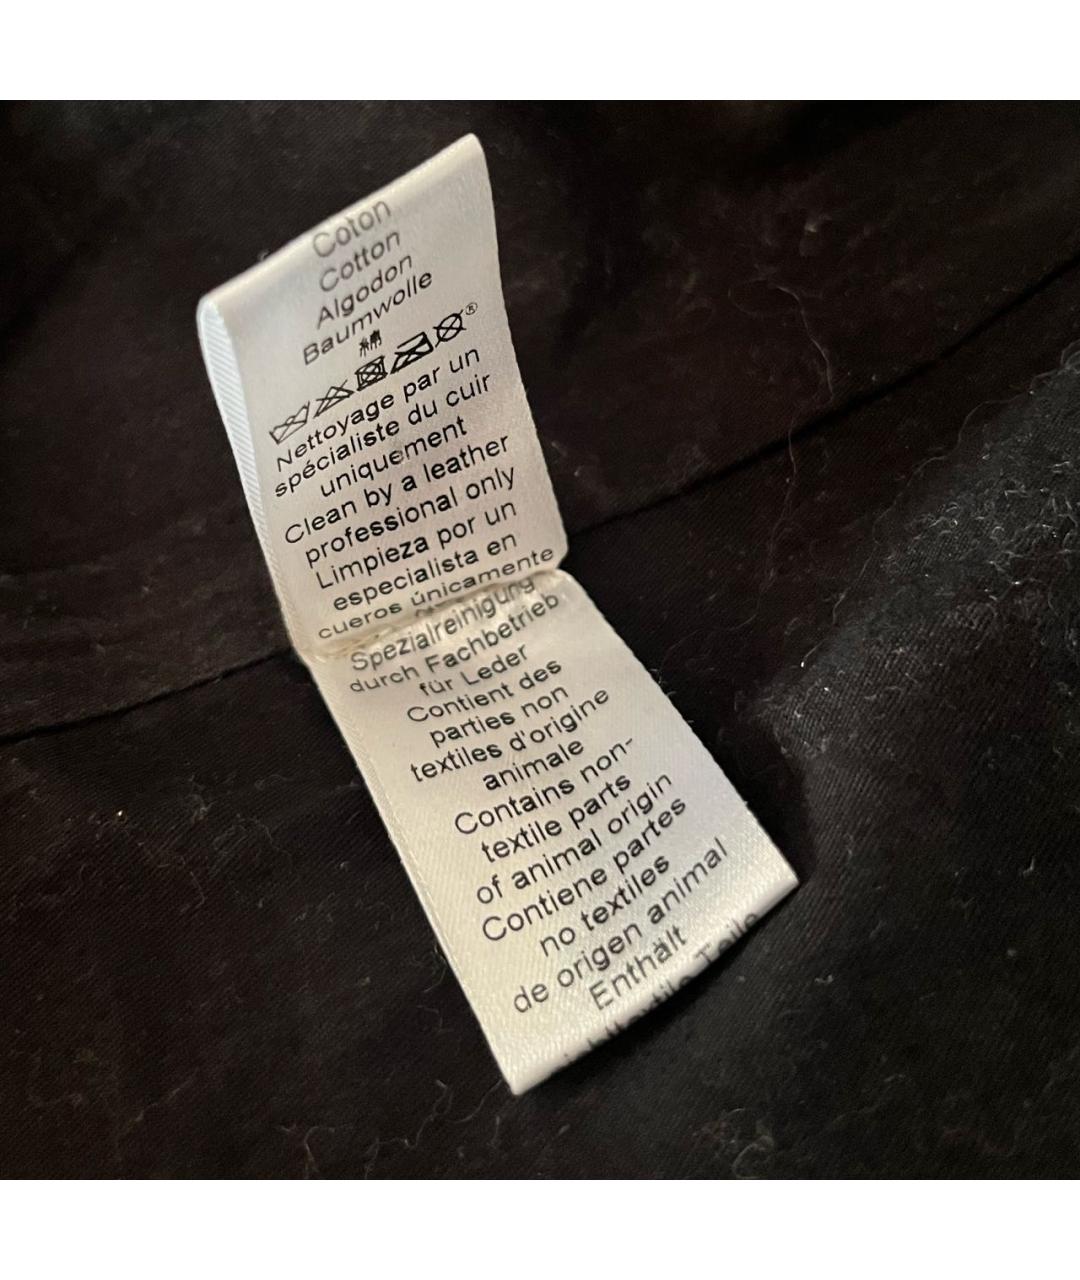 Coton
Cotton
Algodon
Baumwolle
綿
®
Nettoyage par un
spécialiste du cuir
uniquement
Clean by a leather
professional only
Limpieza por un
especialista en
cueros únicamente
Spezialreinigung
durch Fachbetrieb
für Leder
Contient des
parties non
textiles d'origine
animale
Contains non-
textile parts
of animal origin
Contiene partes
no textiles
de origen animal
Enthält
Teile